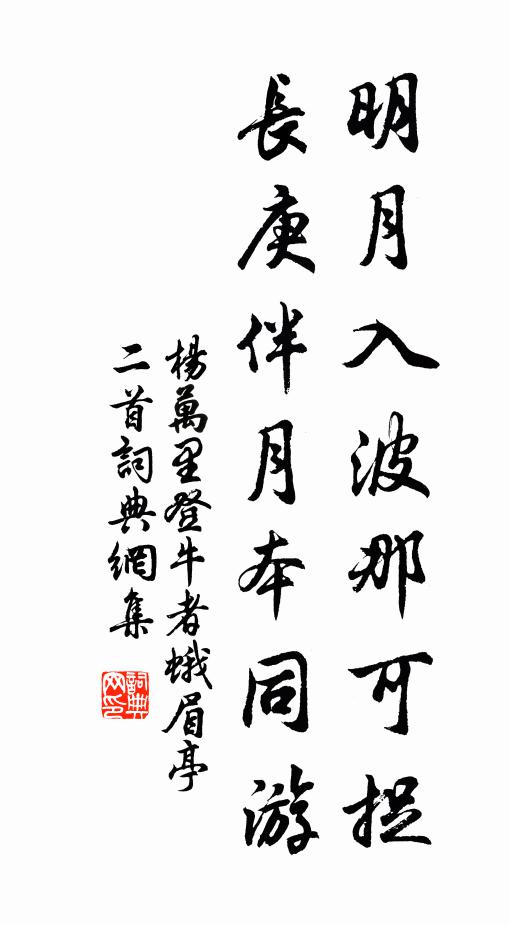 明月入波那可捉
長庚伴月本同游
楊萬里登牛者蛾眉亭
二首詞典網集
詞典网印